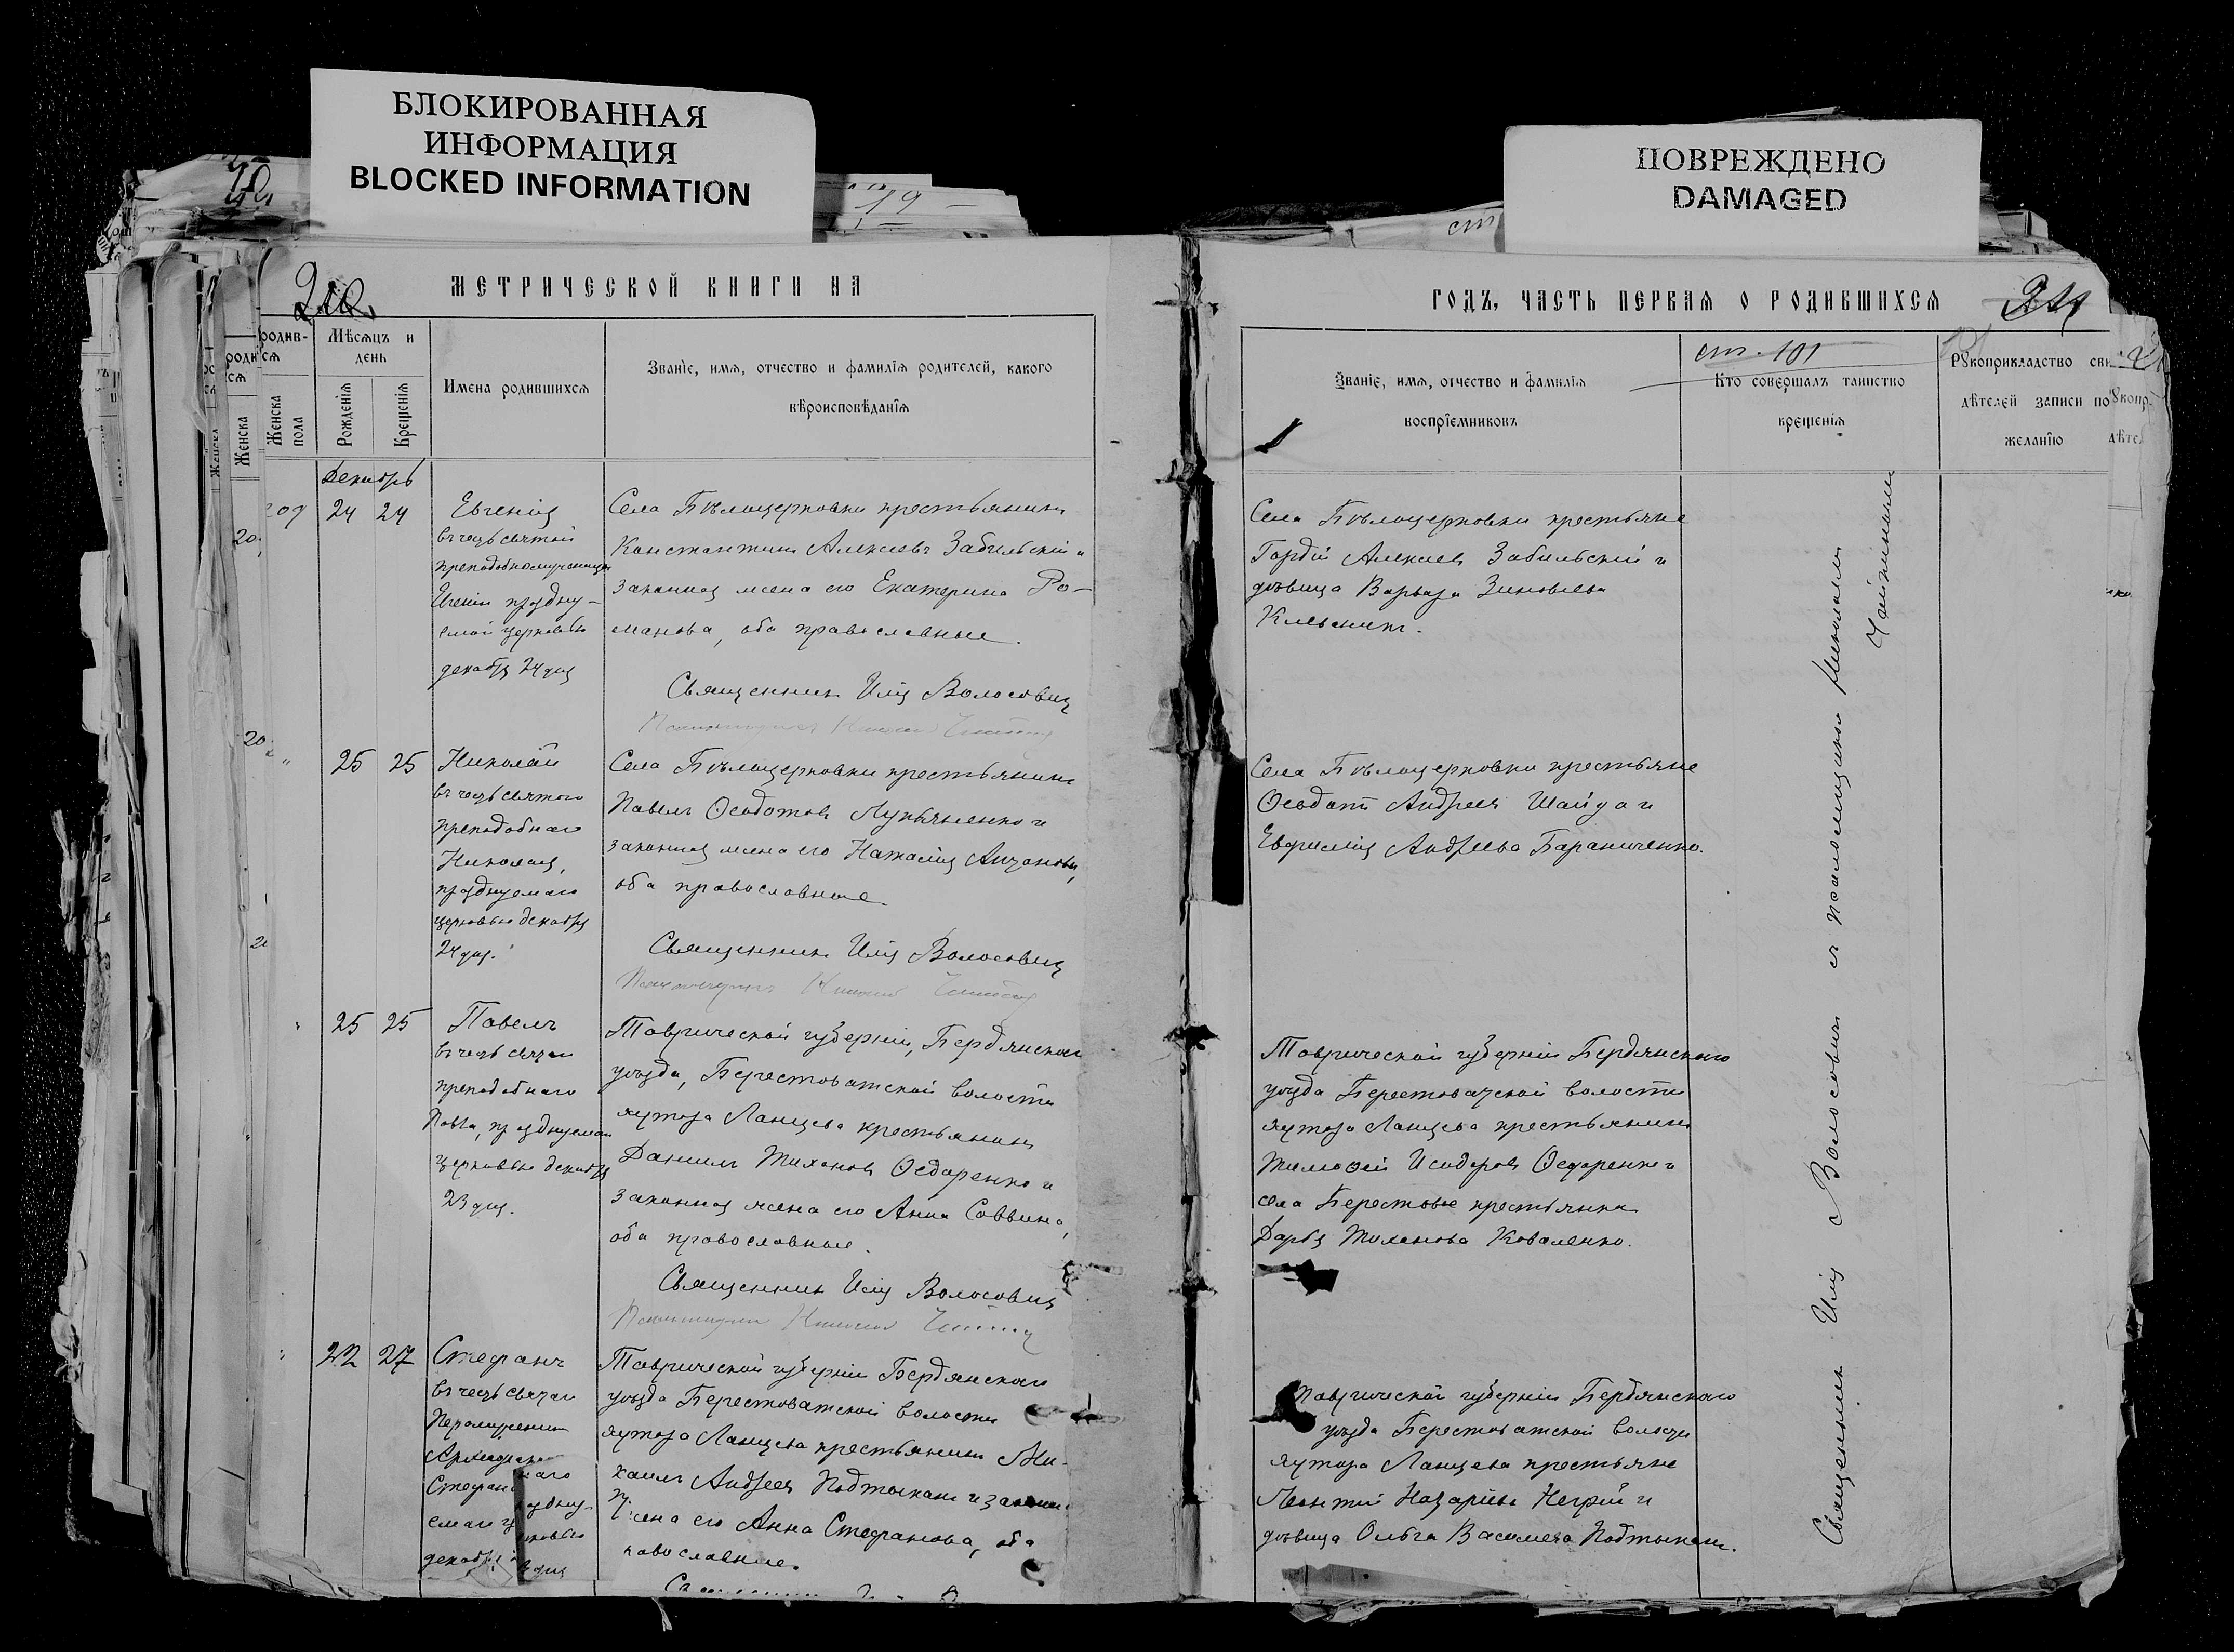 БЛОКИРОВАННАЯ
ИНФОРМАЦИЯ
BLOCKED INFORMATION
ПОВРЕЖДЕНО
DAMAGED
19
МЕТРИЧЕСКОЙ КНИГИ НА
Мѣсяцъ и
день
Женска
пола
Рожденія
Крещенія
Имена родившихся
Званіе, имя, отчество и фамилія родителей, какого
вѣроисповѣданія
Декабрь
209 24 24
Евгенія
въ честь святой
преподобномученицы
Евгеніи праздну-
емой церковью
декабря 24 дня
Села Бѣлоцерковки крестьянинъ
Константинъ Алексѣевъ Забильскій и
законная жена его Екатерина Ро-
манова, оба православные.
Священникъ Илія Волосовичъ
25 25
Николай
въ честь святого
преподобнаго
Николая,
празднуемаго
церковью декабря
24 дня.
Села Бѣлоцерковки крестьянинъ
Павелъ Ѳеодотовъ Лукьяненко и
законная жена его Наталія
оба православные.
Священникъ Илія Волосовичъ
25 25
Павелъ
въ честь святаго
преподобнаго
Павла, празднуемаго
церковью декабря
23 дня.
Таврической губерніи, Бердянскаго
уѣзда, Берестоватской волости
хутора Ланцева крестьянинъ
Даніилъ Тихоновъ Ѳедоренко и
законная жена его Анна Саввина,
оба православные.
Священникъ Илія Волосовичъ
22 27
Стефанъ
въ честь святаго
Первомученика
Стефана
декабря
Таврической губерніи Бердянскаго
уѣзда Берестоватской волости
хутора Ланцева крестьянинъ Ми-
хаилъ Андреевъ Подтыканъ и законная
жена его Анна Стефанова, оба
православные.
ГОДЪ, ЧАСТЬ ПЕРВАЯ О РОДИВШИХСЯ
Званіе, имя, отчество и фамилія
воспріемниковъ
ст. 101
Кто совершалъ таинство
крещенія
Рукоприкладство сви
дѣтелей записи по
желанію
Села Бѣлоцерковки крестьяне
Гордій Алексѣевъ Забильскій и
дѣвица Варвара Зиновіева
Села Бѣлоцерковки крестьяне
Ѳеодотъ Андреевъ Шайда и
Евфимія Андреева Бараниченко.
Таврической губерніи Бердянскаго
уѣзда Берестоватской волости
хутора Ланцева крестьянинъ
Тимоѳей Исидоровъ Ѳедоренко и
села Берестовое крестьянка
Дарья Коваленко.
Таврической губерніи Бердянскаго
уѣзда Берестоватской волости
хутора Ланцева крестьяне
Леонтій Назаріевъ Негрій и
дѣвица Ольга Васильева Подтыканъ.
Священникъ Илія Волосовичъ съ псаломщикомъ Николаемъ